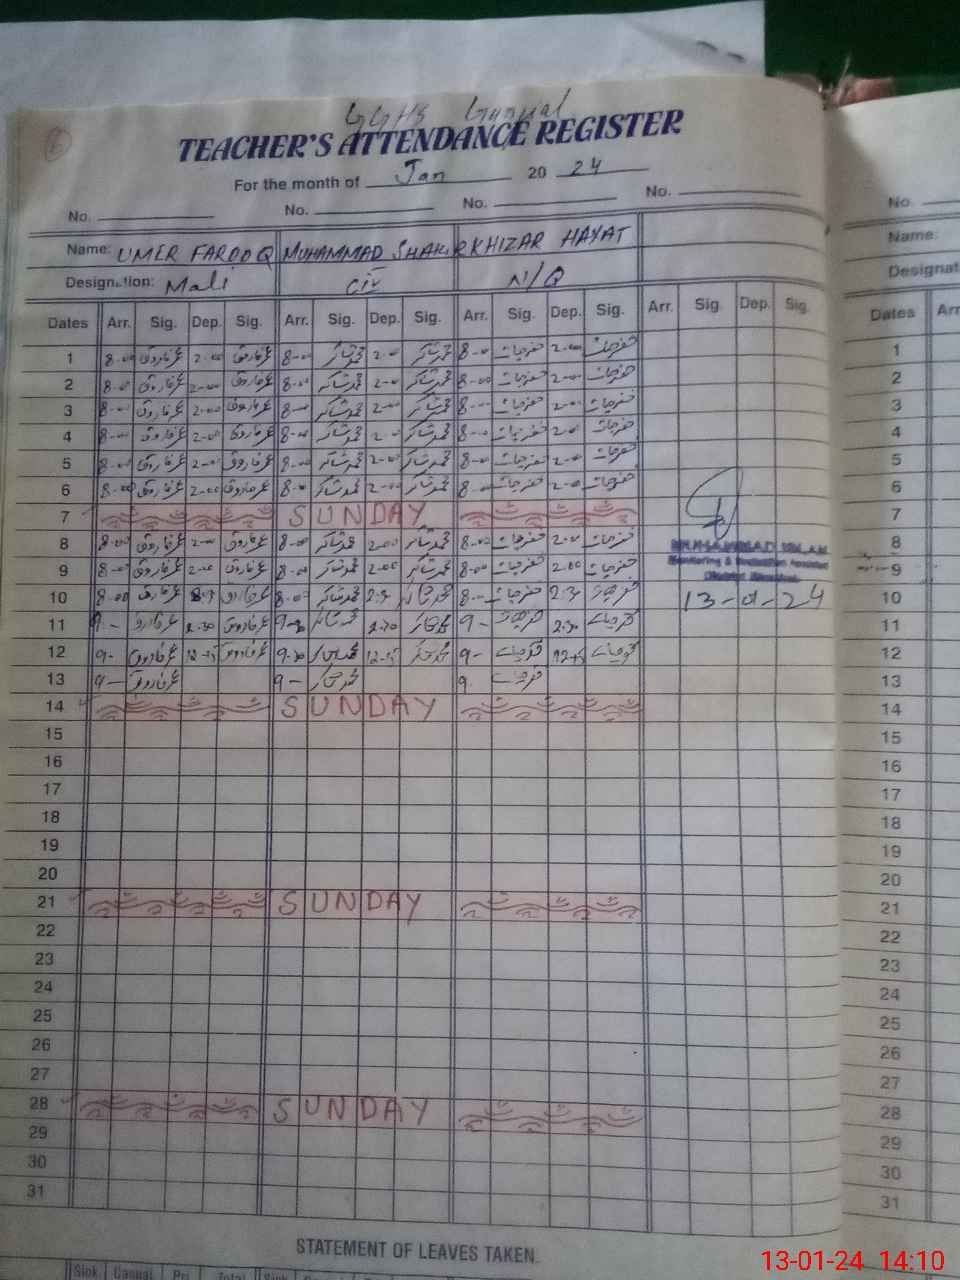 GGHS
TEACHER'S ATTENDANCE REGISTER
For the month of Jan 20 24
No. No. No. No.
Name: UMER FAROOQ MUHAMMAD SHAKIR KHIZAR HAYAT
Designation: Mali N/Q
Dates Arr. Sig. Dep. Sig. Arr. Sig. Dep. Sig. Arr. Sig. Dep. Sig. Arr. Sig. Dep. Sig.
1 8-00 عمرفاروق 2-00 عمرفاروق 8-00 محمدشاکر 2-00 محمدشاکر 8-00 خضرحیات 2-00 خضرحیات
2 8-00 عمرفاروق 2-00 عمرفاروق 8-00 محمدشاکر 2-00 محمدشاکر 8-00 خضرحیات 2-00 خضرحیات
3 8-00 عمرفاروق 2-00 عمرفاروق 8-00 محمدشاکر 2-00 محمدشاکر 8-00 خضرحیات 2-00 خضرحیات
4 8-00 عمرفاروق 2-00 عمرفاروق 8-00 محمدشاکر 2-00 محمدشاکر 8-00 خضرحیات 2-00 خضرحیات
5 8-00 عمرفاروق 2-00 عمرفاروق 8-00 محمدشاکر 2-00 محمدشاکر 8-00 خضرحیات 2-00 خضرحیات
6 8-00 عمرفاروق 2-00 عمرفاروق 8-00 محمدشاکر 2-00 محمدشاکر 8-00 خضرحیات 2-00 خضرحیات
7 SUNDAY
8 8-00 عمرفاروق 2-00 عمرفاروق 8-00 محمدشاکر 2-00 محمدشاکر 8-00 خضرحیات 2-00 خضرحیات
9 8-00 عمرفاروق 2-00 عمرفاروق 8-00 محمدشاکر 2-00 محمدشاکر 8-00 خضرحیات 2-00 خضرحیات
Monitoring & Evaluation Assistant
10 8-00 عمرفاروق عمرفاروق 8-00 محمدشاکر 2-3 محمدشاکر 8-- خضرحیات 2-3 خضرحیات 13-01-24
11 9- عمرفاروق 2-30 عمرفاروق محمدشاکر 2-30 محمدشاکر 9- خضرحیات 2-30 خضرحیات
12 9- عمرفاروق 12-15 عمرفاروق 9-30 محمدشاکر 12-15 محمدشاکر 9- خضرحیات 12-15 خضرحیات
13 9- عمرفاروق 9- محمدشاکر 9 خضرحیات
14 SUNDAY
15
16
17
18
19
20
21 SUNDAY
22
23
24
25
26
27
28 SUNDAY
29
30
31
STATEMENT OF LEAVES TAKEN.
Sick Casual Total
No.
Name:
Designat
Dates Arr
1
2
3
4
5
6
7
8
9
10
11
12
13
14
15
16
17
18
19
20
21
22
23
24
25
26
27
28
29
30
31
13-01-24 14:10